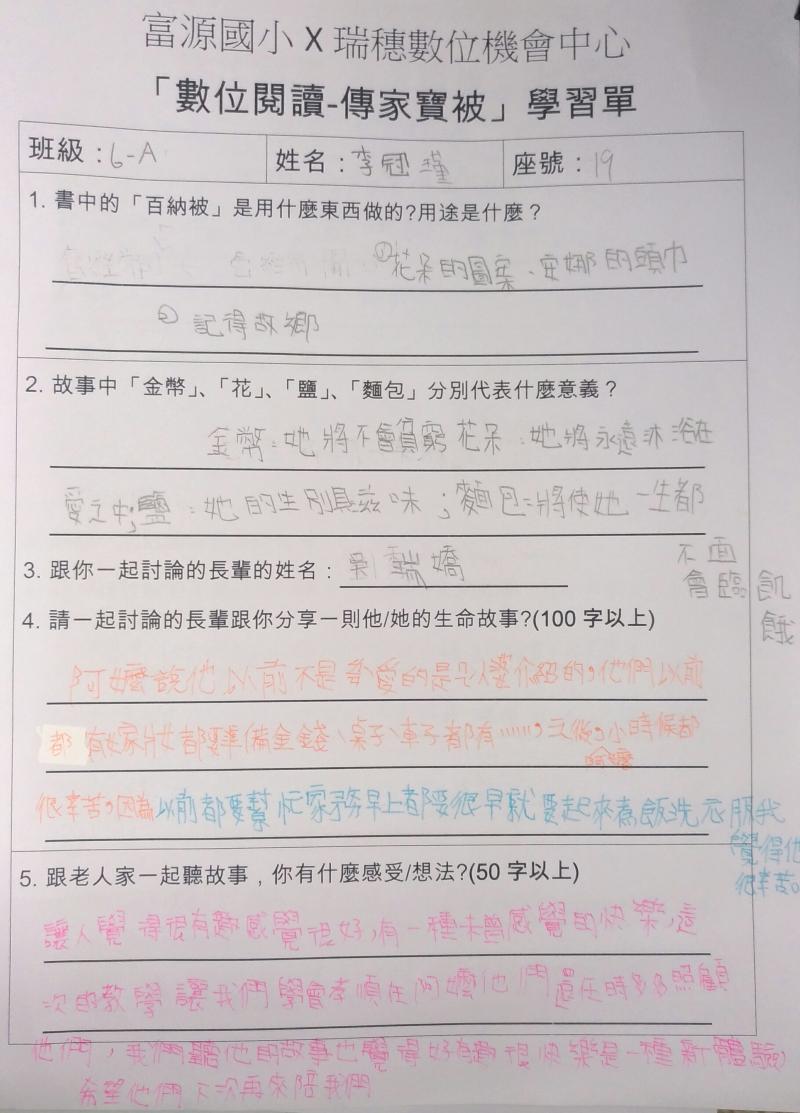 富源國小 X 瑞穗數位機會中心
「數位閱讀-傳家寶被」學習單
班級：6-A 姓名：李冠瑾 座號：19
1. 書中的「百納被」是用什麼東西做的?用途是什麼？
①花朵的圖案、安娜的頭巾
② 記得故鄉
2. 故事中「金幣」、「花」、「鹽」、「麵包」分別代表什麼意義？
金幣：她將不會貧窮 花朵：她將永遠沐浴在
愛之中；鹽：她的生別具茲味；麵包：將使她一生都
不會面臨飢餓
3. 跟你一起討論的長輩的姓名：劉瑞嬌
4. 請一起討論的長輩跟你分享一則他/她的生命故事?(100 字以上)
阿嬤說他以前不是戀愛的是媒人婆介紹的，他們以前
都有嫁妝都要準備金錢、桌子、車子都有……，之後，阿嬤小時候都
很辛苦，因為以前都要幫忙家務早上都要很早就要起來煮飯洗衣服我
覺得他
很辛苦。
5. 跟老人家一起聽故事，你有什麼感受/想法?(50 字以上)
讓人覺得很有趣感覺很好，有一種未曾感覺的快樂，這
次的教學讓我們學會孝順在阿嬤他們還在時多多照顧
他們，我們聽他的故事也覺得好有趣很快樂是一種新體驗，
希望他們下次再來陪我們